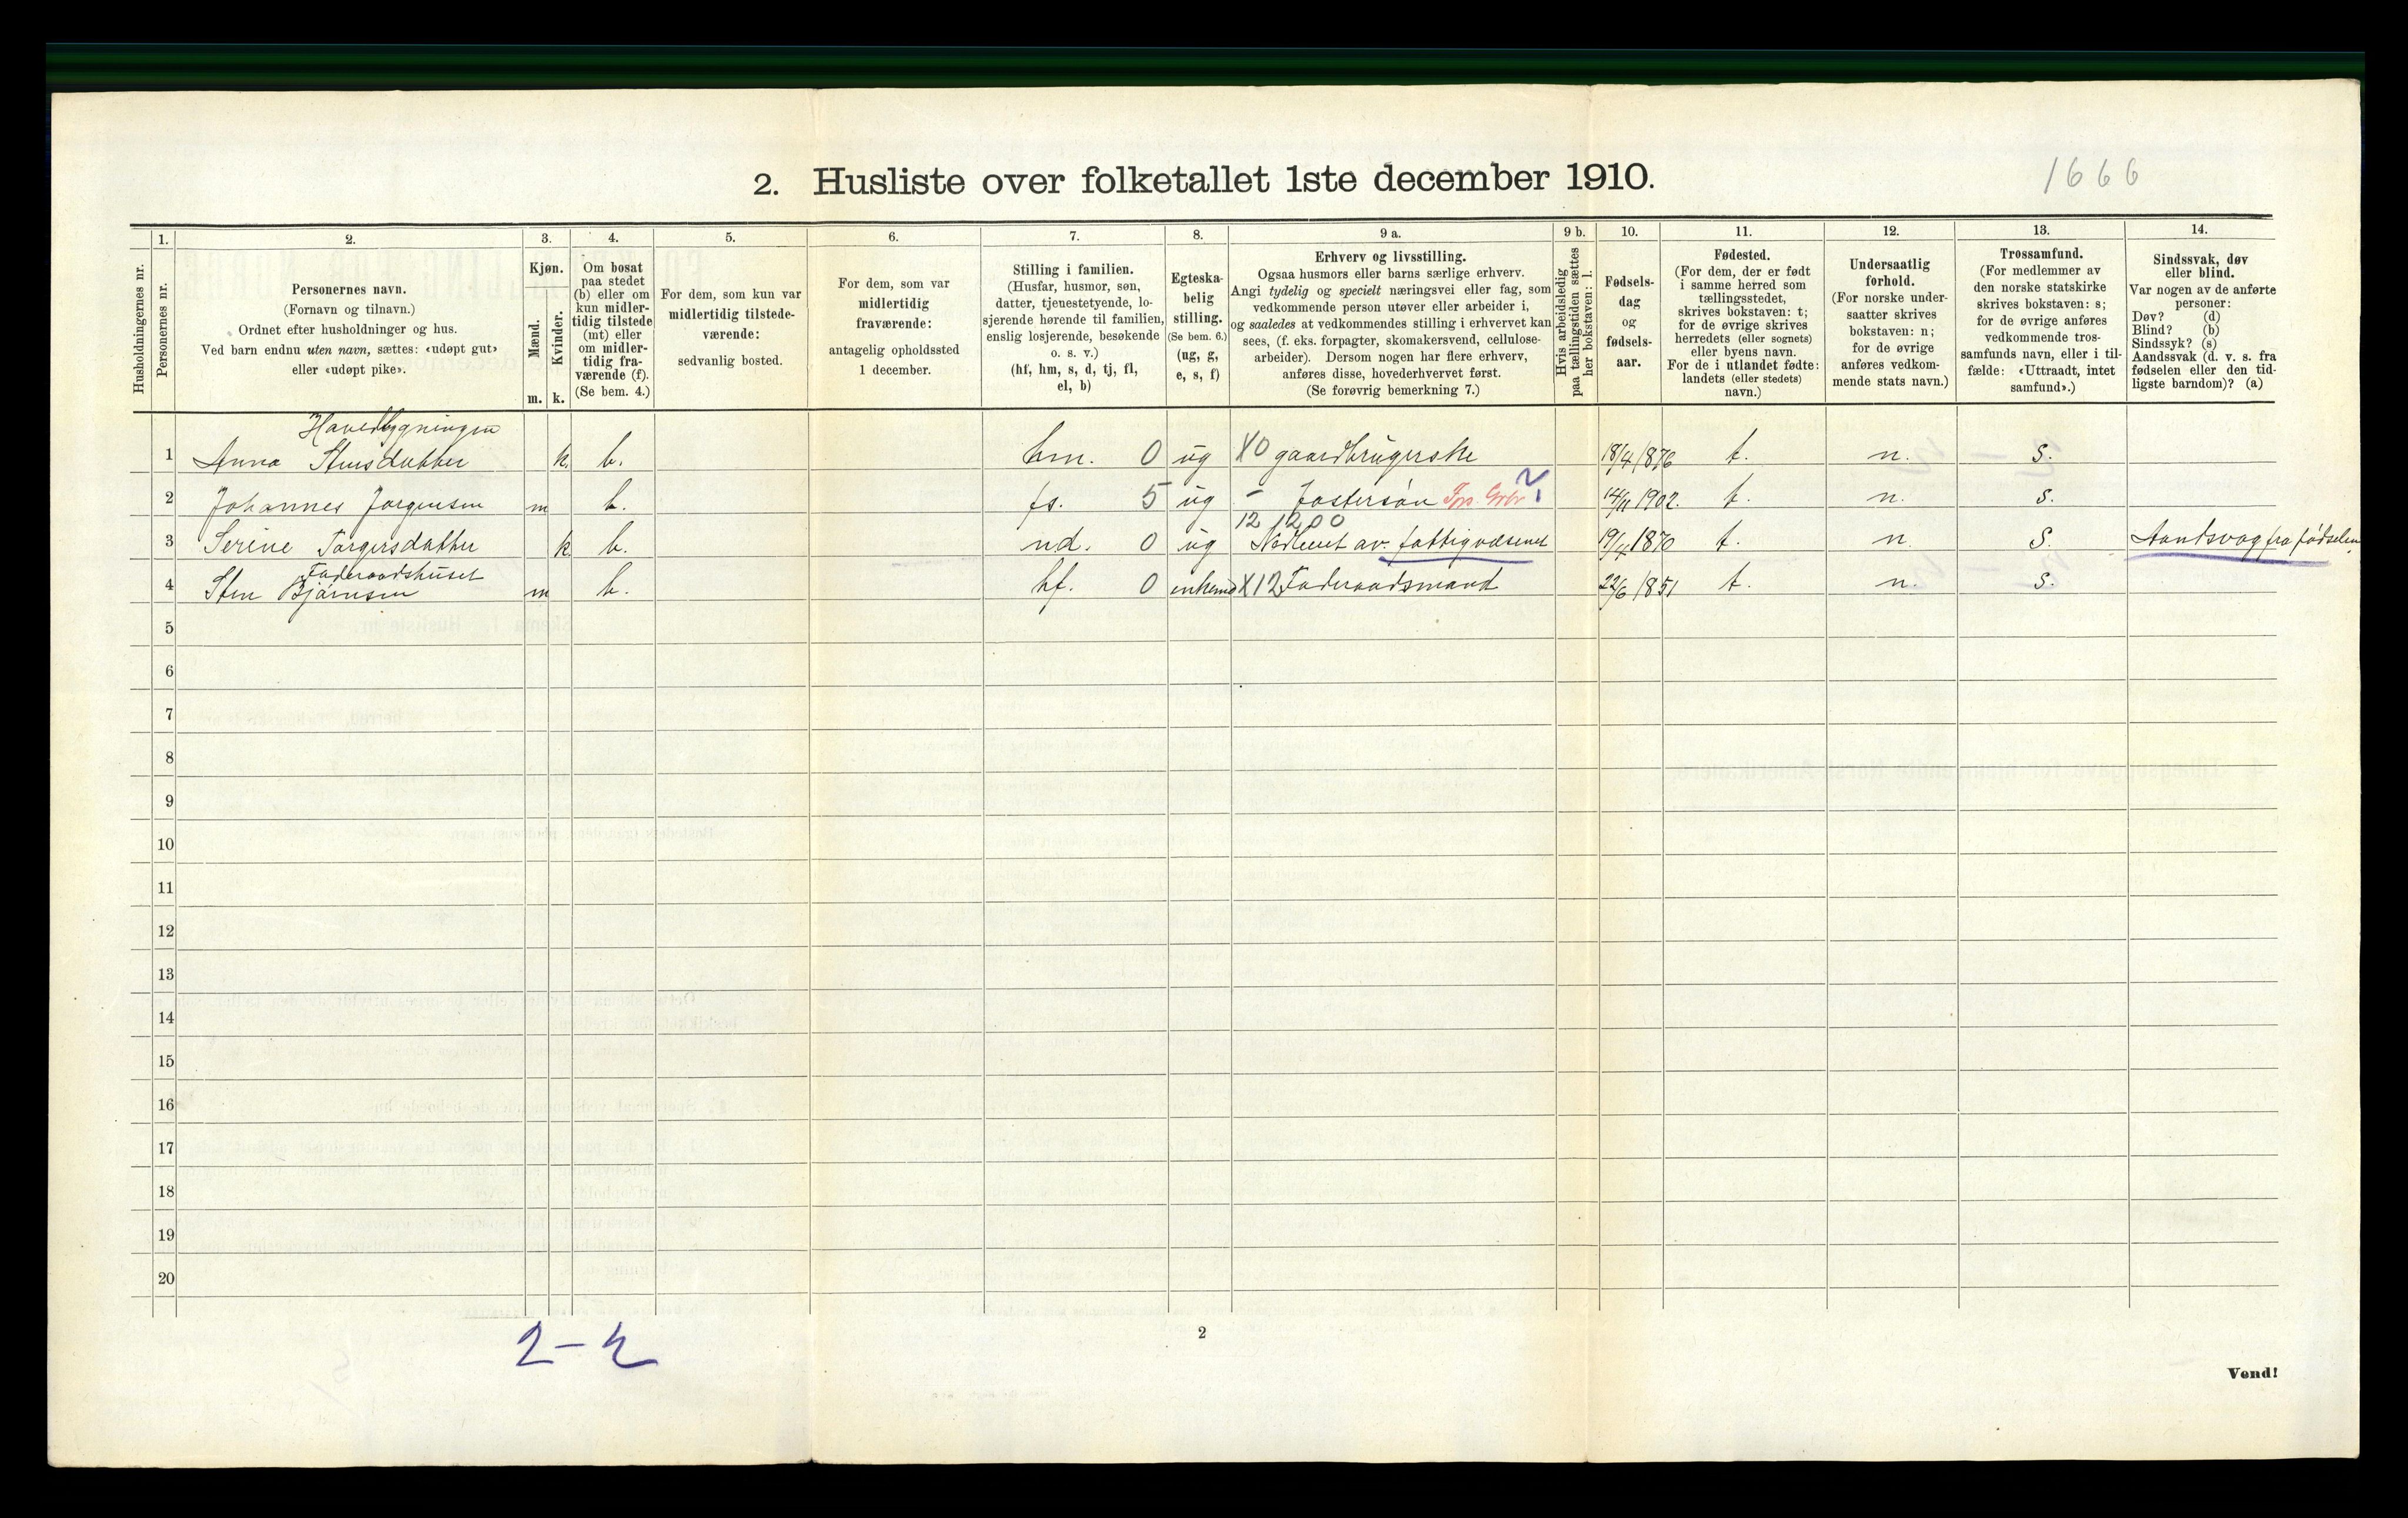 2. Husliste over folketallet 1ste december 1910.
1666
Husholdningernes nr.
1.
Personernes nr.
2.
Personernes navn.
(Fornavn og tilnavn.)
Ordnet efter husholdninger og hus.
Ved barn endnu uten navn, sættes: «udøpt gut»
eller «udøpt pike».
3.
Kjøn.
Mænd.
Kvinder.
m. k.
4.
Om bosat
paa stedet
(b) eller om
kun midler-
tidig tilstede
(mt) eller
om midler-
tidig fra-
værende (f).
(Se bem. 4.)
5.
For dem, som kun var
midlertidig tilstede-
værende:
sedvanlig bosted.
6.
For dem, som var
midlertidig
fraværende:
antagelig opholdssted
1 december.
7.
Stilling i familien.
(Husfar, husmor, søn,
datter, tjenestetyende, lo-
sjerende hørende til familien,
enslig losjerende, besøkende
o. s. v.)
(hf, hm, s, d, tj, fl,
el, b)
8.
Egteska-
belig
stilling.
(Se bem. 6.)
(ug, g,
e, s, f)
9 a.
Erhverv og livsstilling.
Ogsaa husmors eller barns særlige erhverv.
Angi tydelig og specielt næringsvei eller fag, som
vedkommende person utøver eller arbeider i,
og saaledes at vedkommendes stilling i erhvervet kan
sees, (f. eks. forpagter, skomakersvend, cellulose-
arbeider). Dersom nogen har flere erhverv,
anføres disse, hovederhvervet først.
(Se forøvrig bemerkning 7.)
9 b.
Hvis arbeidsledig
paa tællingstiden sættes
her bokstaven: l.
10.
Fødsels-
dag
og
fødsels-
aar.
11.
Fødested.
(For dem, der er født
i samme herred som
tællingsstedet,
skrives bokstaven: t;
for de øvrige skrives
herredets (eller sognets)
eller byens navn.
For de i utlandet fødte:
landets (eller stedets)
navn.)
12.
Undersaatlig
forhold.
(For norske under-
saatter skrives
bokstaven: n;
for de øvrige
anføres vedkom-
mende stats navn.)
13.
Trossamfund.
(For medlemmer av
den norske statskirke
skrives bokstaven: s;
for de øvrige anføres
vedkommende tros-
samfunds navn, eller i til-
fælde: «Uttraadt, intet
samfund».)
14.
Sindssvak, døv
eller blind.
Var nogen av de anførte
personer:
Døv? (d)
Blind? (b)
Sindssyk? (s)
Aandssvak (d. v. s. fra
fødselen eller den tid-
ligste barndom)? (a)
Hovedbygningen
1 Anna Stensdatter k. b. hm. 0 ug X0 gaardbrugerske 18/4 1876 t. n. s.
2 Johannes Jørgensen m b. fs. 5 ug - fostersøn 14/11 1902. t. n. s.
12 1200
3 Serine Torgersdatter k b. nd. 0 ug Nedlemet av fattigvæsenet 19/4 1870 t. n. s. Aandsvag fra fødselen
Føderaadshuset
4 Sten Bjørnsen m b. hf. 0 enkemd X12 Føderaadsmand 22/6 1851 t. n. s.
5
6
7
8
9
10
11
12
13
14
15
16
17
18
19
20
2-2
2
Vend!